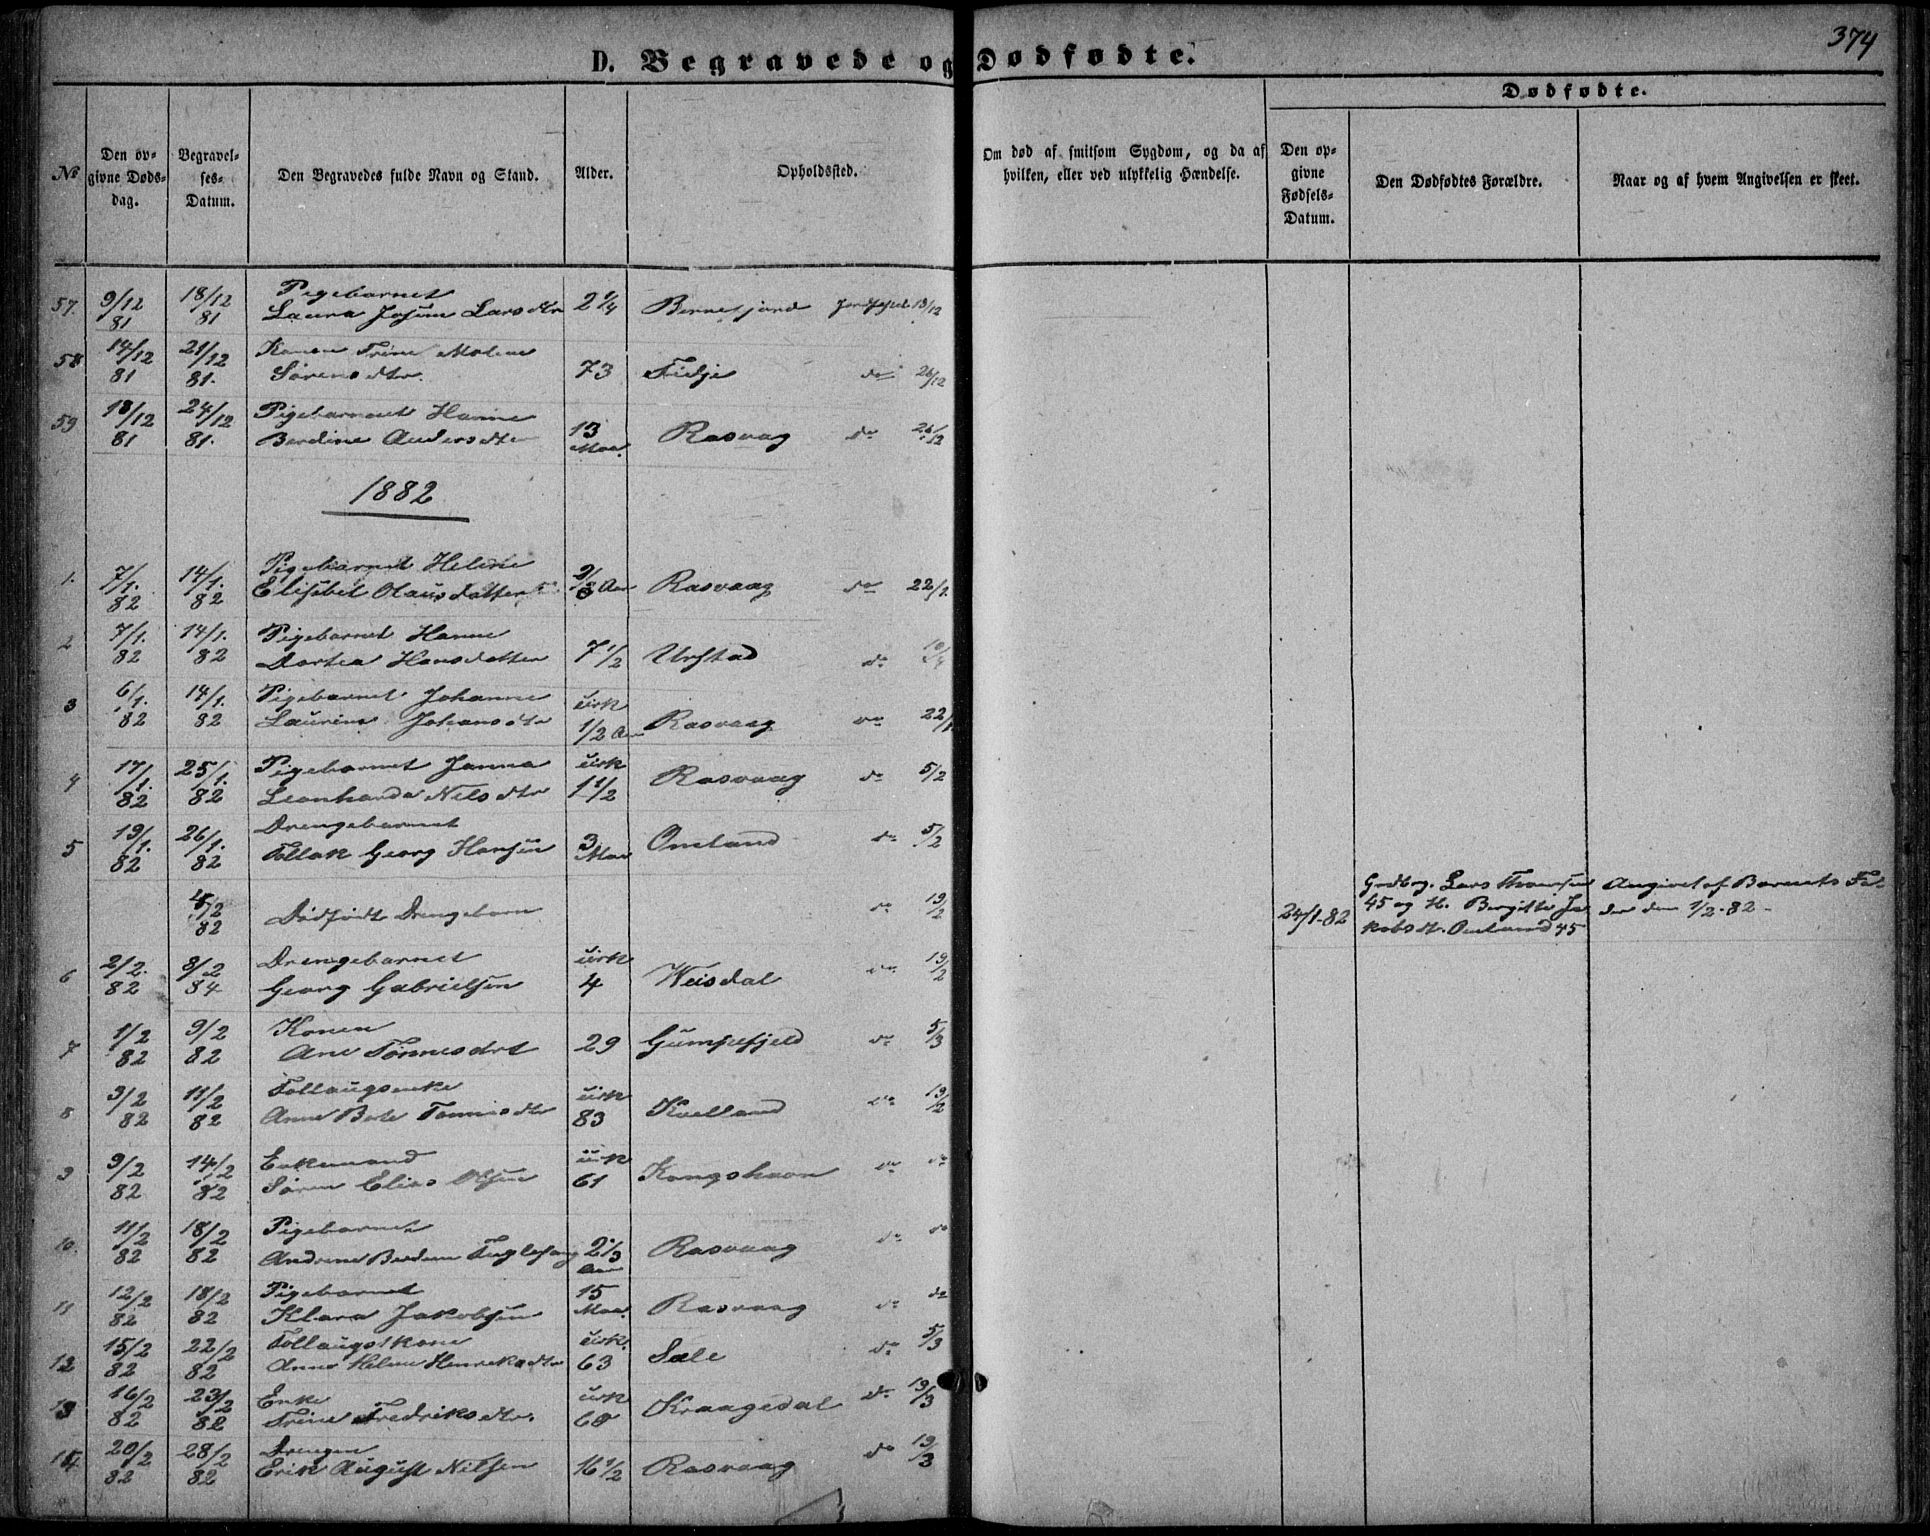 374
D. Begravede og Dødfødte.
Dødfødte.
No
Den op-
givne Døds-
dag.
Begravel-
ses-
Datum.
Den Begravedes fulde Navn og Stand.
Alder.
Opholdssted.
Om død af smitsom Sygdom, og da af
hvilken, eller ved ulykkelig Hændelse.
Den op-
givne
Fødsels-
Datum.
Den Dødfødtes Forældre.
Naar og af hvem Angivelsen er skeet.
57. 9/12 18/12 Pigebarnet
81 81 Laura Lars dtr 2 1/4 13/12
58 14/12 21/12 Konen Trine
81 81. Sørens dtr. 73 Fidje do 26/12
59 18/12 24/12 Pigebarnet Hanne
81 81. Berdine Anders dtr 13 Maa. Rasvaag do 26/12
1882
1. 7/1. 14/1. Pigebarnet Helene
82 82 Elisebet Olausdatter Aar Rasvaag do 22/1.
2 7/1. 14/1. Pigebarnet Hanne
82 82 Dortea Hansdatter 7 1/2 Urstad do
3 6/1. 14/1. Pigebarnet Johanne cirk
82 82 Laurine Johans dtr 1/2 Aar Rasvaag do 22/1
4 17/1. 25/1. Pigebarnet Janna cirk
82 82 Leonharda Nils dtr 1 1/2 Rasvaag do 5/2
5 19/1. 26/1. Drengebarnet
82 82 Tollak Georg Hansen 3 Maa Omland do 5/2
5/2
82 Dødfødt Drengebarn do 19/2
24/1-82
Lars Thomsen
45 og H. Bergitte Ja-
kobsdtr. Omland 45
Angivet af Barnets Fa-
der den 1/2-82-
6 2/2. 9/2 Drengebarnet cirk
82 84 Georg Gabrielsen 4 Veisdal do 19/2
7 1/2 9/2 Konen
82 82 Ane Tønnesdrt 29 Gumpefjeld do 5/3
8 3/2 11/2 Follaugsenke cirk
82 82 Anne Tønnes dtr 83 Kvelland do 19/2
9 9/2 14/2 Enkemand cirk
82 82 Søren Elias Olsen 61 Kongshavn do do
10. 11/2 18/2 Pigebarnet
82 82 Andrene Berdine Fuglesang 2 1/3 Aar Rasvaag do do
11 12/2 18/2 Pigebarnet 15
82 82 Klara Jakobsen Maa. Rasvaag do do
12 15/2 22/2 Follaugskone cirk.
82 82 Anne Helene Henriks dtr 63 Sæle do 5/3
13 16/2 23/2 Enke cirk
82 82 Trine Fredriks dtr. Kraagedal do 19/3
14. 20/2 28/2 Drengen
82 82 Erik August Nilsen 16 1/2 Rasvaag do 19/3